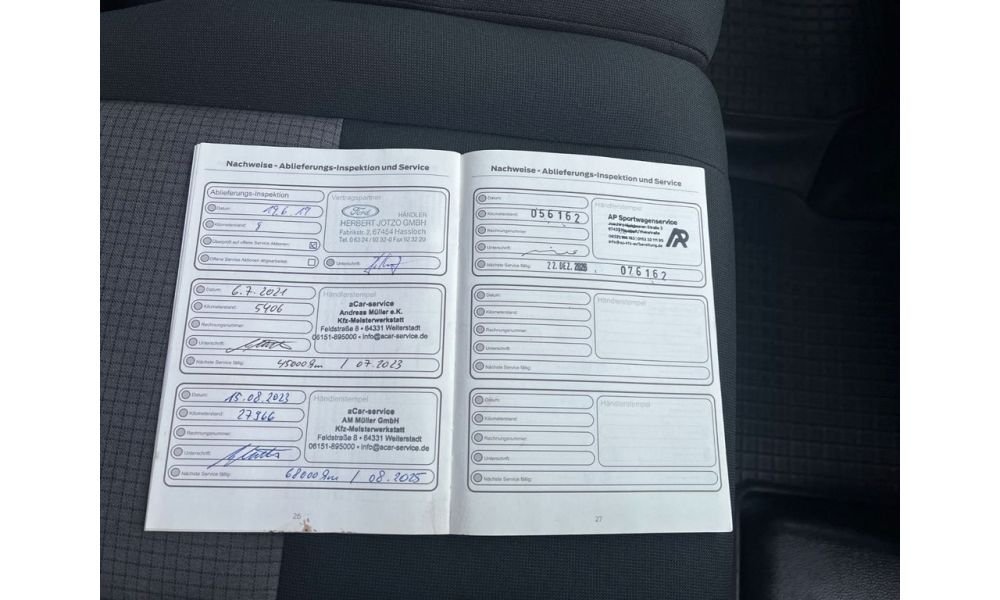 Nachweise - Ablieferungs-Inspektion und Service
Ablieferungs-Inspektion
Datum: 19.6 19
Kilometerstand: 8
Überprüft auf offene Service Aktionen:
Offene Service Aktionen abgearbeitet:
Vertragspartner
Ford
HÄNDLER
HERBERT JOTZO GMBH
Fabrikstr. 2, 67454 Hassloch
Tel. 0 63 24 / 92 32-0 Fax 92 32 20
Unterschrift:
Datum: 6.7.2021
Kilometerstand: 5406
Rechnungsnummer:
Unterschrift:
Nächste Service fällig: 45000 km / 07.2023
Händlerstempel
aCar-service
Andreas Müller e.K.
Kfz-Meisterwerkstatt
Feldstraße 8 • 64331 Weiterstadt
06151-895000 • info@acar-service.de
Datum: 15.08.2023
Kilometerstand: 27366
Rechnungsnummer:
Unterschrift:
Nächste Service fällig: 68000 km / 08.2025
Händlerstempel
aCar-service
AM Müller GmbH
Kfz-Meisterwerkstatt
Feldstraße 8 • 64331 Weiterstadt
06151-895000 • info@acar-service.de
26
Nachweise - Ablieferungs-Inspektion und Service
Datum:
Kilometerstand: 056162
Rechnungsnummer:
Unterschrift:
Nächste Service fällig: 22. DEZ. 2026 . 076162
Händlerstempel
AP Sportwagenservice
AR
Datum:
Kilometerstand:
Rechnungsnummer:
Unterschrift:
Nächste Service fällig:
Händlerstempel
Datum:
Kilometerstand:
Rechnungsnummer:
Unterschrift:
Nächste Service fällig:
Händlerstempel
27